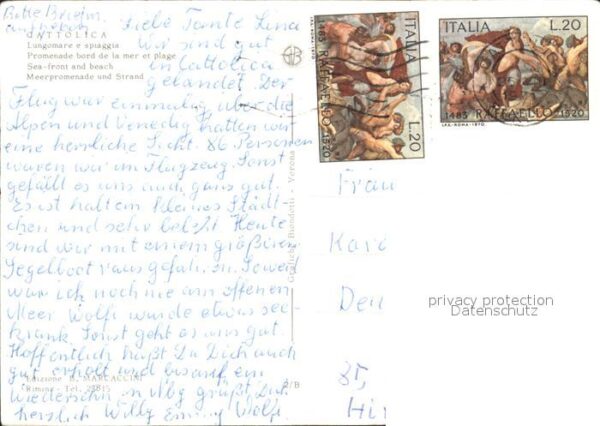 Bitte Briefm.
aufheben
CATTOLICA
Lungomare e spiaggia
Promenade bord de la mer et plage
Sea-front and beach
Meerpromenade und Strand
Liebe Tante Lina
Wir sind gut
in Cattolica
gelandet. Der
Flug war einmalig über die
Alpen und Venedig hatten wir
eine herrliche Sicht. 86 Personen
waren wir im Flugzeug. Sonst
gefällt es uns auch ganz gut.
Es ist halt ein kleines Städt-
chen und sehr belebt. Heute
sind wir mit einem größeren
Segelboot raus gefahren. Soweit
war ich noch nie am offenen
Meer. Wolfi wurde etwas see-
krank. Sonst geht es uns gut.
Hoffentlich hast Du Dich auch
gut erholt und bis auf ein
Wiedersehn in Nbg grüßt Dich
herzlich Willy Emmy Wolfi.
Edizione B. MARCACCINI
Rimini - Tel. 28815
2/B
Grafiche Biondetti - Verona
ITALIA
L.20
1483 RAFFAELLO 1520
I.P.S.-ROMA-1970
ITALIA L.20
1483 RAFFAELLO 1520
I.P.S.-ROMA-1970
Frau
Karo
Den
85,
Hi
privacy protection
Datenschutz